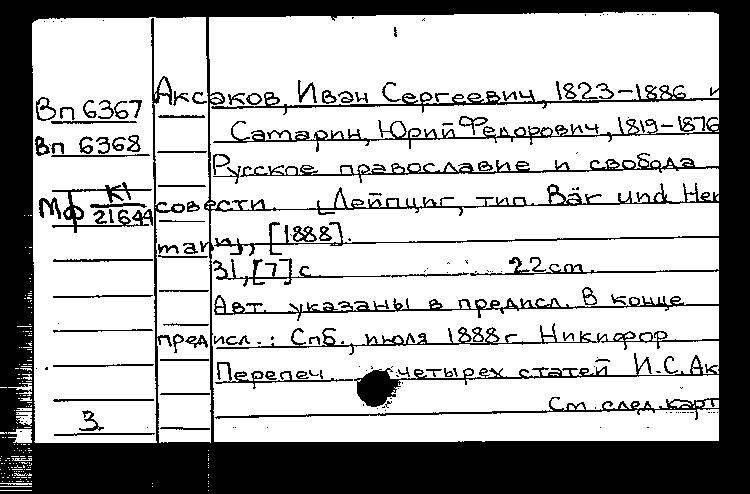 1
Аксаков, Иван Сергеевич, 1823-1886 и
Вп 6367
Самарин, Юрий Федорович, 1819-1876
Вп 6368
Русское православие и свобода
Мф К1/21644
совести. [Лейпциг, тип. Bär und Her
mann], [1888].
31, [7] с. 22 cm.
Авт. указаны в предисл. В конце
предисл.: Спб., июля 1888 г. Никифор
Перепеч. четырех статей И.С. Ак
См. след. карт
3